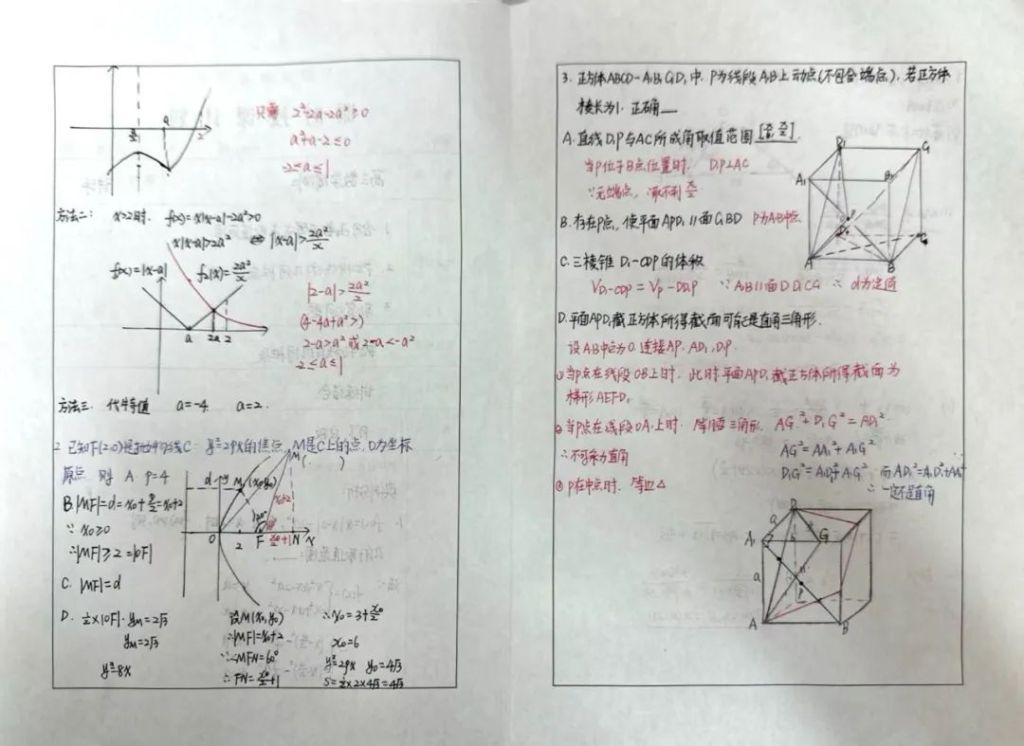 只需 2²-2a-2a²≥0
a²+a-2≤0
-2≤a≤1
a
2
方法二: x>2时. f(x)=x|x-a|-2a²>0
x|x-a|>2a² ⇔ |x-a|>2a²/x
f(x)=|x-a| f₂(x)=2a²/x
|2-a|>2a²/2
(4-4a+a²>)
2-a>a² 或 2-a<-a²
-2≤a≤1
a 2a 2
方法三. 代特值 a=-4. a=2.
2. 已知F(2,0)是抛物线C y²=2px的焦点, M是C上的点, O为坐标
原点 则 ( )
A. p=4
B. |MF|=d=x₀+p/2=x₀+2
∵x₀≥0
∴|MF|≥2=|OF|
C. |MF|=d
D. ½×|OF|·yM=2√3
yM=2√3
y²=8x
d y M(x₀,y₀) M
120°
x₀+2
O 2 F N x
设M(x₀,y₀)
∴|MF|=x₀+2
∵∠MFN=60°
∴FN=x₀/2+1
∴x₀=3+x₀/2
x₀=6
y²=2px y₀=4√3
S=½×2×4√3=4√3
3. 正方体ABCD-A₁B₁C₁D₁中, P为线段A₁B上动点(不包含端点), 若正方体
棱长为1. 正确
A. 直线D₁P与AC所成角取值范围
当P位于B点位置时. D₁P⊥AC
∵无端点, 取不到
B. 存在P点, 使平面APD₁//面C₁BD P为A₁B中点
C. 三棱锥D₁-CDP的体积
V D₁-CDP = V P-DD₁P ∵A₁B//面DD₁C₁C ∴ d为定值
D. 平面APD₁截正方体所得截面可能是直角三角形.
设A₁B中点为O. 连接AP, AD₁, D₁P
①当P点在线段OB上时. 此时平面APD₁截正方体所得截面为
梯形AEFD₁
②当P点在线段OA₁上时. 等腰三角形, AG²+D₁G²=AD₁²
∴不可乘为直角
AG²=AA₁²+A₁G²
D₁G²=A₁D₁²+A₁G² 而AD₁²=A₁D₁²+AA₁²
∴一定不是直角
③P在中点时. 等边△
D₁ C₁
A₁ B₁
P
A B
A₁ G
a
a
P
A B